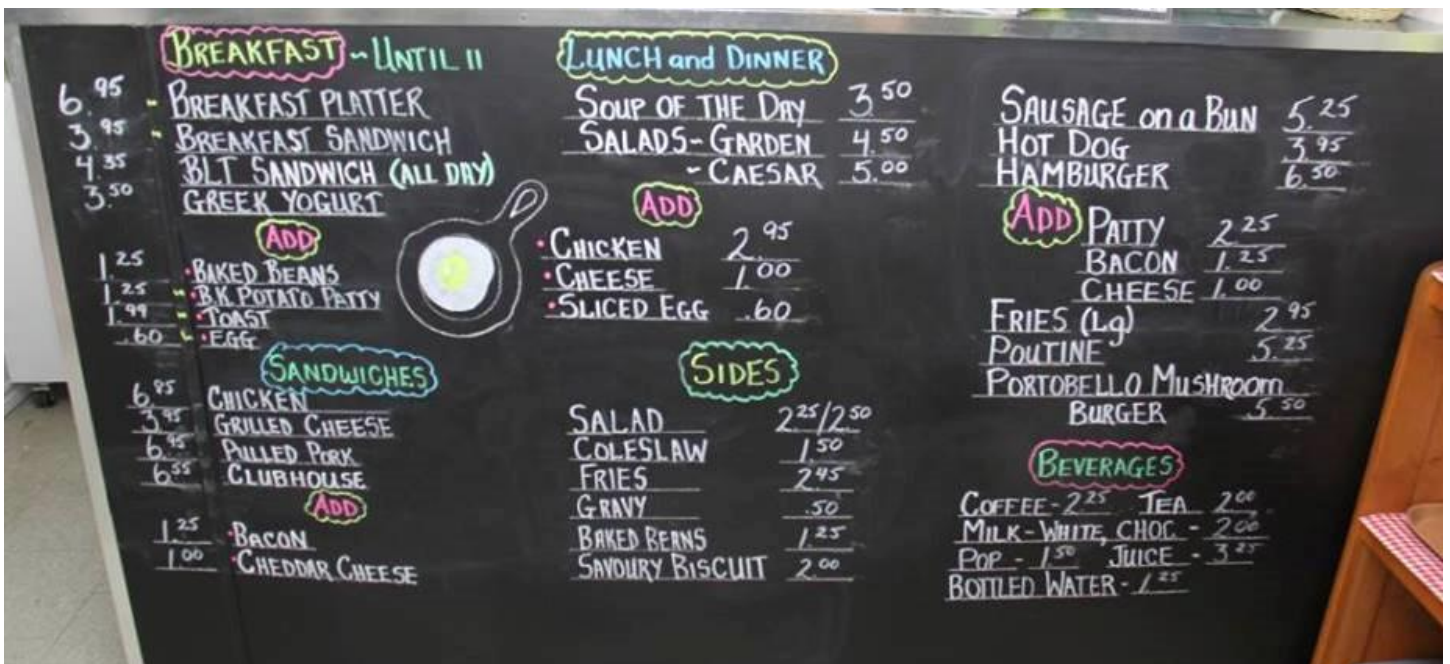 BREAKFAST ~ UNTIL 11
6.95 - BREAKFAST PLATTER
3.95 - BREAKFAST SANDWICH
4.35 BLT SANDWICH (ALL DAY)
3.50 GREEK YOGURT
ADD
1.25 • BAKED BEANS
1.25 - • B.K. POTATO PATTY
1.99 - • TOAST
.60 - • EGG
SANDWICHES
6.95 CHICKEN
3.95 GRILLED CHEESE
6.95 PULLED PORK
6.55 CLUBHOUSE
ADD
1.25 • BACON
1.00 • CHEDDAR CHEESE
LUNCH and DINNER
SOUP OF THE DAY 3.50
SALADS - GARDEN 4.50
- CAESAR 5.00
ADD
• CHICKEN 2.95
• CHEESE 1.00
• SLICED EGG .60
SIDES
SALAD 2.25/2.50
COLESLAW 1.50
FRIES 2.45
GRAVY .50
BAKED BEANS 1.25
SAVOURY BISCUIT 2.00
SAUSAGE on a BUN 5.25
HOT DOG 3.95
HAMBURGER 6.50
ADD PATTY 2.25
BACON 1.25
CHEESE 1.00
FRIES (Lg) 2.95
POUTINE 5.25
PORTOBELLO MUSHROOM
BURGER 5.50
BEVERAGES
COFFEE - 2.25 TEA 2.00
MILK - WHITE, CHOC - 2.00
POP - 1.50 JUICE - 3.25
BOTTLED WATER - 1.25